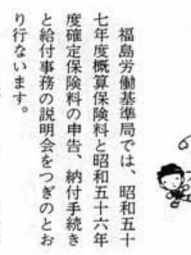 福島労働基準局では、昭和五十
七年度概算保険料と昭和五十六年
度確定保険料の申告、納付手続き
と給付事務の説明会をつぎのとお
り行ないます。